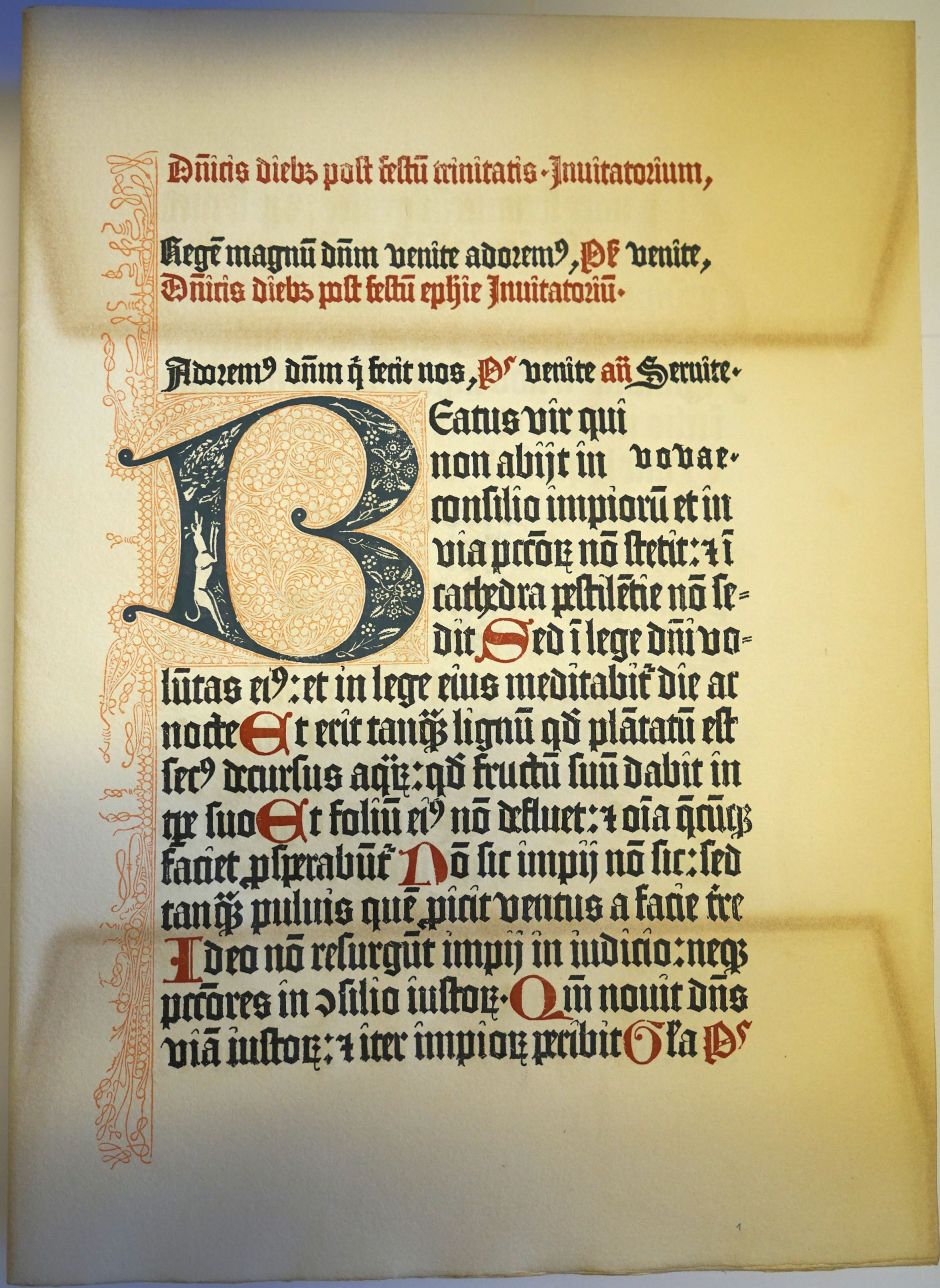 Dn̄icis diebꝫ post festū trinitatis · Inuitatorium,
Regē magnū dn̄m venite adoremꝰ, Ps̄ venite,
Dn̄icis diebꝫ post festū ephie Inuitatoriū·
Adoremꝰ dn̄m q̄ fecit nos, Ps venite an̄ Seruite·
BEatus vir qui
non abijt in vovae·
consilio impiorū et in
via pcc̄oꝝ nō stetit: ⁊ ī
cathedra pestilētie nō se=
dit Sed ī lege dn̄i vo=
lūtas eiꝰ: et in lege eius meditabit᷑ die ac
nocte Et erit tanqꝫ̄ lignū qd̄ plātatū est
secꝰ decursus aqꝝ̄: qd̄ fructū suū dabit in
tꝑe suo Et foliū eiꝰ nō defluet: ⁊ oīa q̄cūqꝫ
faciet ꝓsperabūt᷑ Nō sic impij nō sic: sed
tanqꝫ̄ puluis quē ꝓicit ventus a facie t᷑re
Ideo nō resurgūt impij in iudicio: neqꝫ
pcc̄ores in ↄsilio iustoꝝ· Qm̄ nouit dn̄s
viā iustoꝝ: ⁊ iter impioꝝ peribit Gl̄a Ps
1